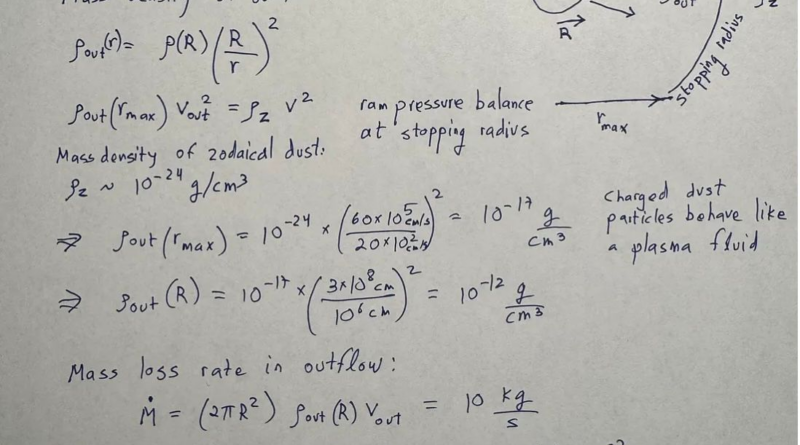 ρout(r) = ρ(R) (R/r)²
R
stopping radius
ρout(rmax) Vout² = ρz V²
ram pressure balance
at stopping radius
rmax
Mass density of zodaical dust:
ρz ~ 10⁻²⁴ g/cm³
⇒ ρout(rmax) = 10⁻²⁴ × (60×10⁵ cm/s / 20×10² cm/s)² = 10⁻¹⁷ g/cm³
charged dust
particles behave like
a plasma fluid
⇒ ρout(R) = 10⁻¹⁷ × (3×10⁸ cm / 10⁶ cm)² = 10⁻¹² g/cm³
Mass loss rate in outflow:
Ṁ = (2πR²) ρout(R) Vout = 10 kg/s